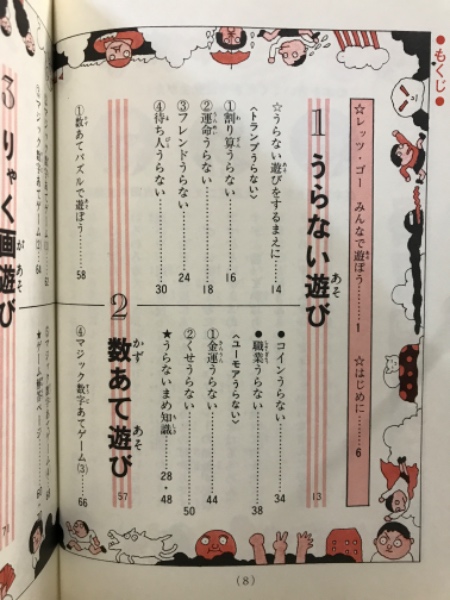 ●もくじ●
☆レッツ・ゴー みんなで遊ぼう………1
☆はじめに………6
1 うらない遊び 13
☆うらない遊びをするまえに……14
〈トランプうらない〉
①割り算うらない………16
②運命うらない………18
③フレンドうらない………24
④待ち人うらない………30
●コインうらない………34
●職業うらない………38
〈ユーモアうらない〉
①金運うらない………44
②くせうらない………50
★うらないまめ知識………28・48
2 数あて遊び 57
①数あてパズルで遊ぼう………58
②マジック数字あてゲーム(1)……62
③マジック数字あてゲーム(2)……64
④マジック数字あてゲーム(3)………66
3 りゃく画遊び 71
(8)